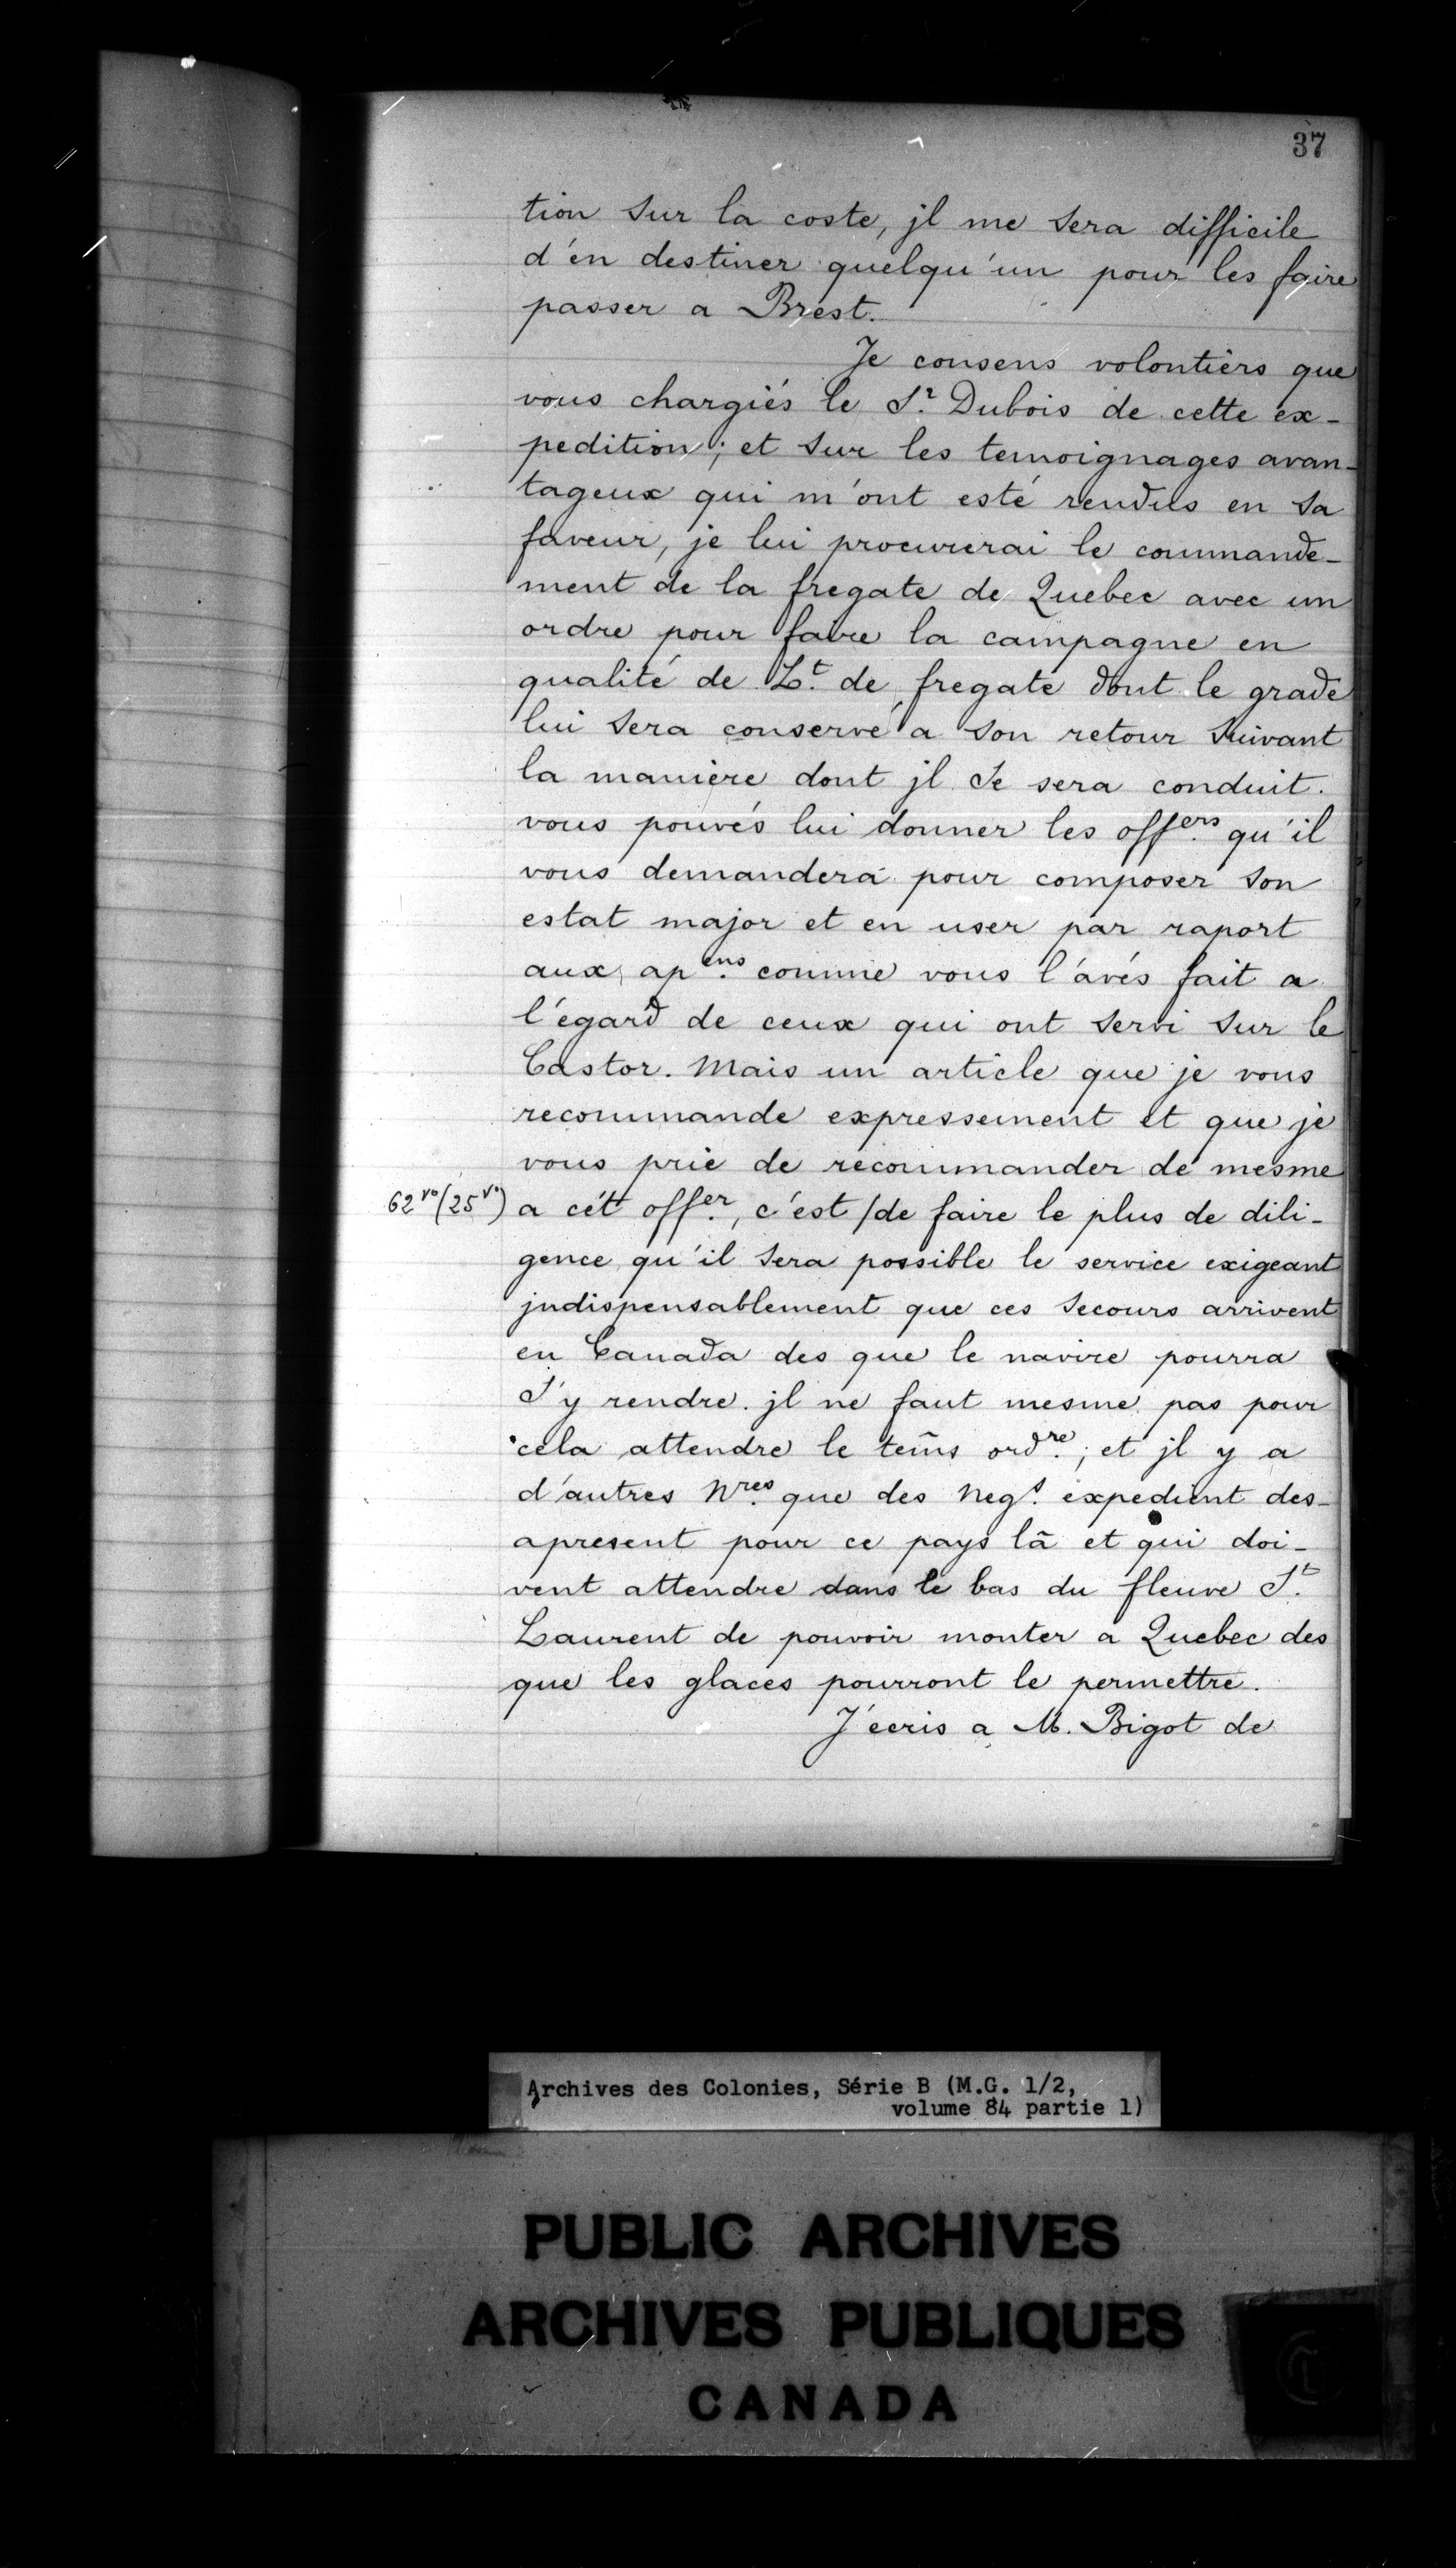 37
tion sur la coste, jl me sera difficile
d'én destiner quelqu'un pour les faire
passer a Brest.
Je consens volontiers que
vous chargiés le S.r Dubois de cette ex-
pedition; et sur les temoignages avan-
tageux qui m'ont esté rendus en sa
faveur, je lui procurerai le commande-
ment de la fregate de Quebec avec un
ordre pour faire la campagne en
qualité de L.t de fregate dont le grade
lui sera conservé a son retour suivant
la manière dont jl se sera conduit.
vous pouvés lui donner les off.ers qu'il
vous demandera pour composer son
estat major et en user par raport
aux ap.ens comme vous l'avés fait a
l'égard de ceux qui ont servi sur le
Castor. Mais un article que je vous
recommande expressement et que je
vous prie de recommander de mesme
62 vo (25 vo) a cét off.er, c'est /de faire le plus de dili-
gence qu'il sera possible le service exigeant
jndispensablement que ces secours arrivent
en Canada des que le navire pourra
s'y rendre. jl ne faut mesme pas pour
cela attendre le tem̃s ord.re; et jl y a
d'autres N.res que des Neg.s expedient des-
apresent pour ce pays là et qui doi-
vent attendre dans le bas du fleuve S.t
Laurent de pouvoir monter a Quebec des
que les glaces pourront le permettre.
J'écris a M. Bigot de
Archives des Colonies, Série B (M.G. 1/2,
volume 84 partie 1)
PUBLIC ARCHIVES
ARCHIVES PUBLIQUES
CANADA